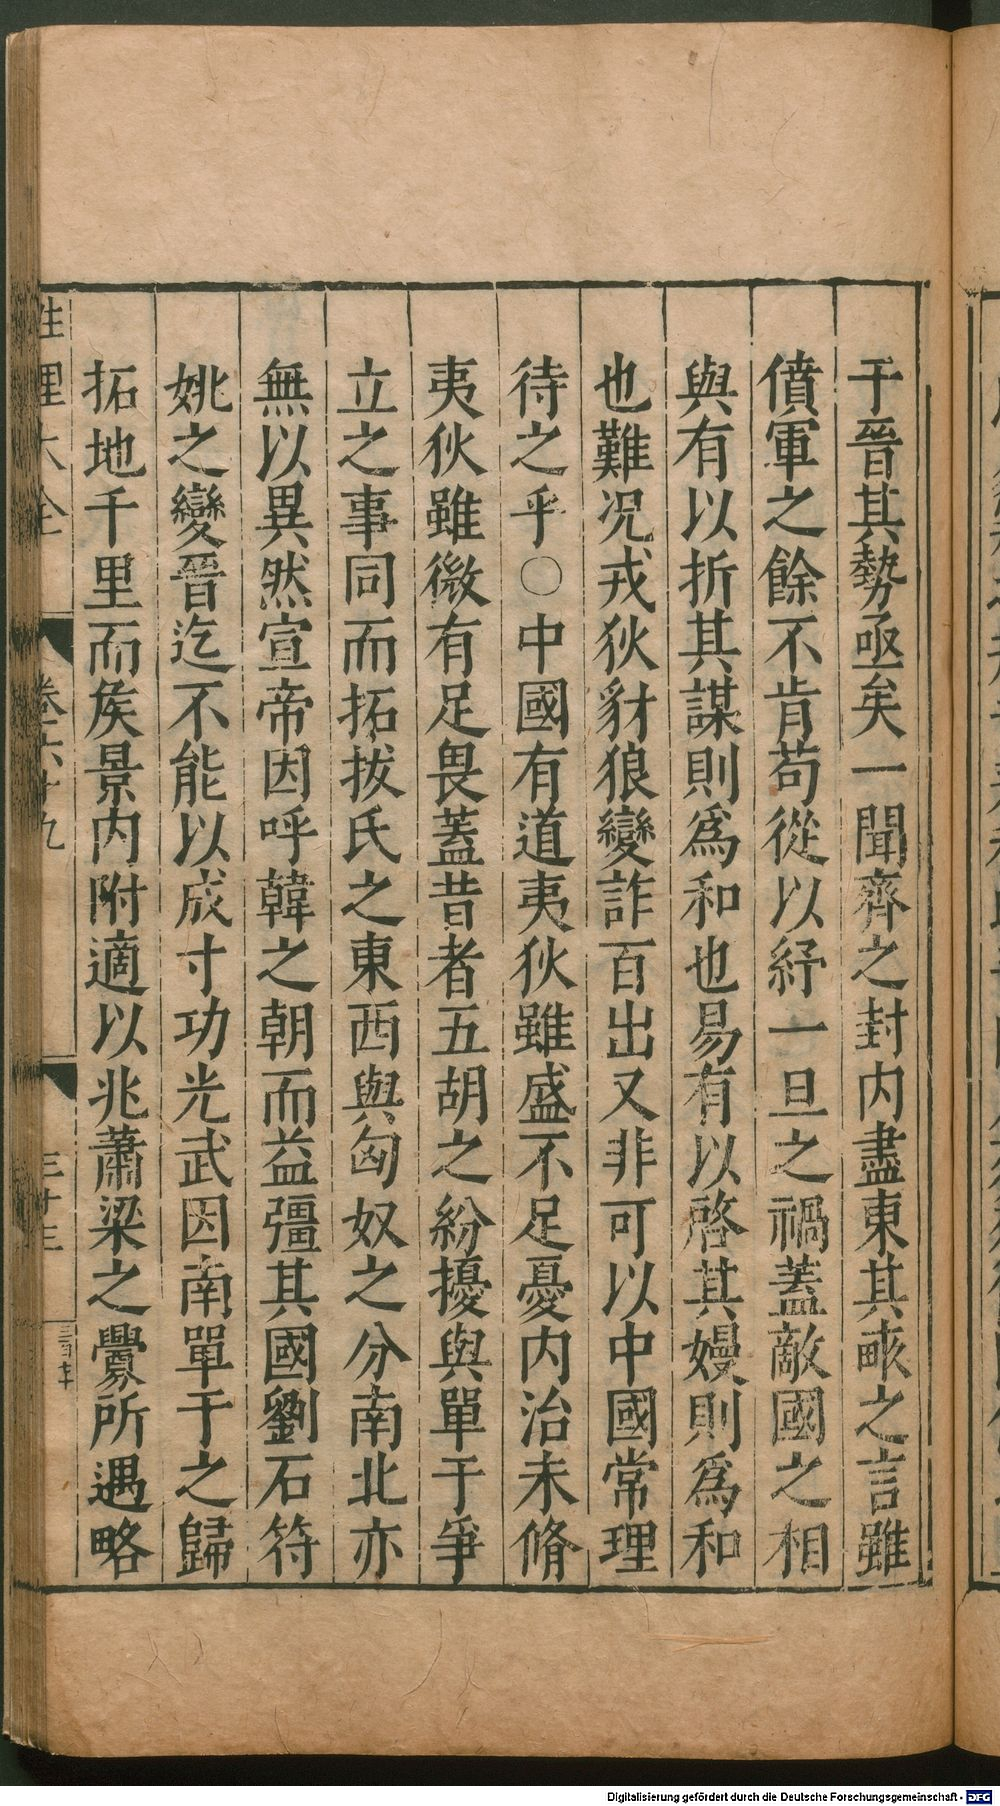 于晉其勢亟矣一聞齊之封内盡東其畞之言雖
僨軍之餘不肯苟從以紓一旦之禍蓋敵國之相
與有以折其謀則爲和也易有以啓其嫚則爲和
也難况戎狄豺狼變詐百出又非可以中國常理
待之乎○中國有道夷狄雖盛不足憂内治未脩
夷狄雖微有足畏蓋昔者五胡之紛擾與單于爭
立之事同而拓拔氏之東西與匈奴之分南北亦
無以異然宣帝因呼韓之朝而益彊其國劉石符
姚之變晉迄不能以成寸功光武因南單于之歸
拓地千里而矦景内附適以兆蕭梁之釁所遇略
性理大全 卷六十九 三十三
Digitalisierung gefördert durch die Deutsche Forschungsgemeinschaft - DFG